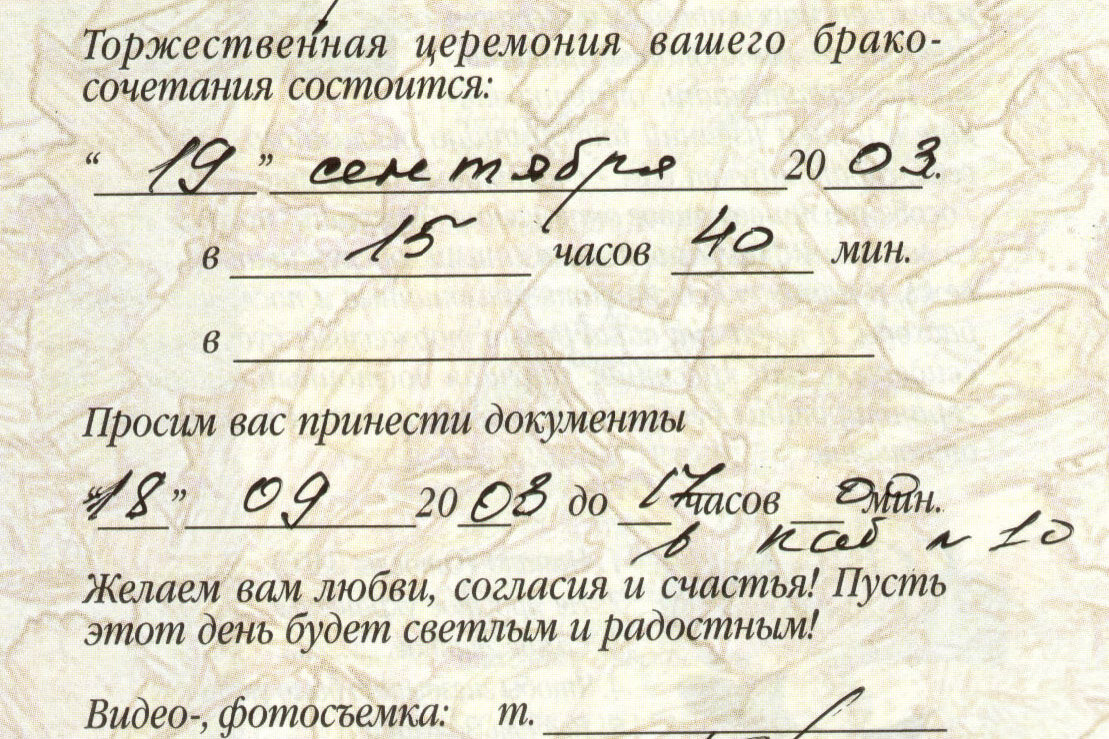 Торжественная церемония вашего брако-
сочетания состоится:
“ 19 ” сентября 20 03 г.
в 15 часов 40 мин.
в
Просим вас принести документы
“18” 09 20 03 до 17 часов 00 мин.
в каб n 10
Желаем вам любви, согласия и счастья! Пусть
этот день будет светлым и радостным!
Видео-, фотосъемка: т.